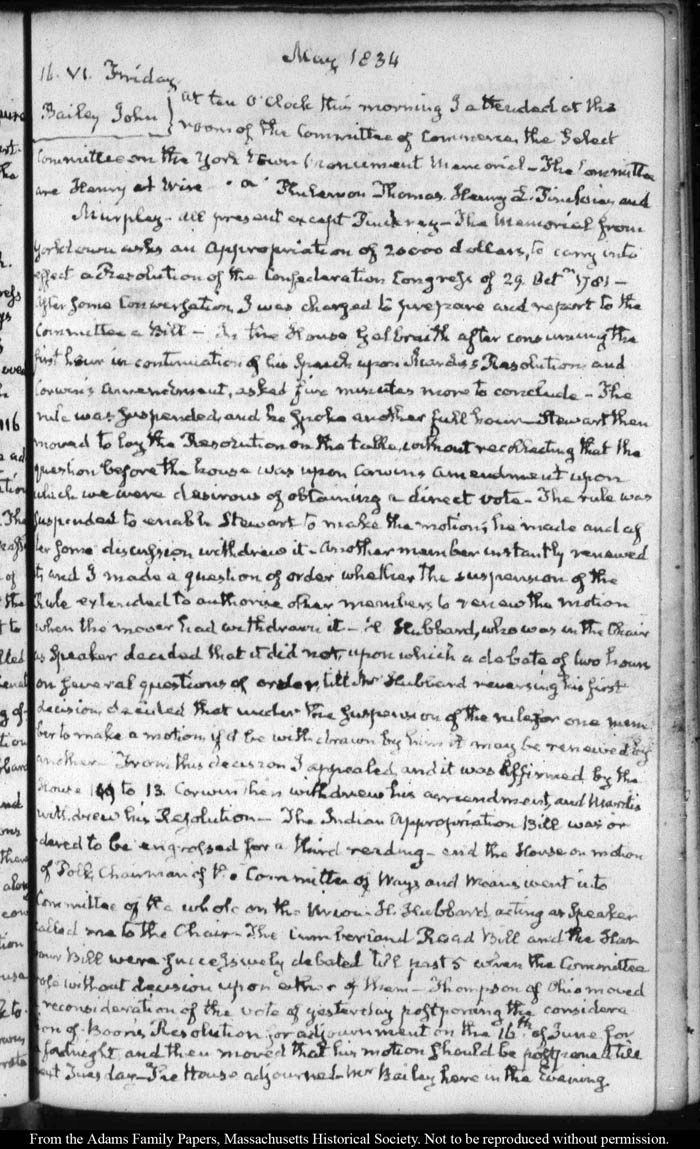 May 1834
16. VI. Friday
Bailey John } at ten O'Clock this morning I attended at the
room of the Committee of Commerce, the Select
Committee on the York Town Monument Memorial - The Committee
are Henry A Wise Thomas, Henry L. Pinckney and
Murphy - all present except Pinckney - The Memorial from
Yorktown asks an appropriation of 20000 dollars, to carry into
effect a Resolution of the Confederation Congress of 29. Octr 1781 -
After some Conversation, I was charged to prepare and report to the
Committee a Bill - In the House Galbraith after consuming the
first hour in continuation of his Speech upon Mardis's Resolution, and
Corwin's amendment, asked five minutes more to conclude - The
rule was suspended, and he spoke another full hour - Stewart then
moved to lay the Resolution on the table, without recollecting that the
question before the house was upon Corwins amendment upon
which we were desirous of obtaining a direct vote - The rule was
suspended to enable Stewart to make the motion; he made and af
ter some discussion withdrew it - another member instantly renewed
it, and I made a question of order whether the suspension of the
Rule extended to authorise other members to renew the motion
when the mover had withdrawn it - H Hubbard, who was in the Chair
as Speaker decided that it did not, upon which a debate of two hours
on several questions of order, till Mr Hubbard reversing his first
decision, decided that under the suspension of the rule for one mem
ber to make a motion, if it be withdrawn by him it may be renewed by
another - From this decision I appealed, and it was affirmed by the
House to 13. Corwin then withdrew his amendment, and Mardis
withdrew his Resolution - The Indian Appropriation Bill was or
dered to be engrossed for a third reading - and the House on motion
of Polk, Chairman of the Committee of Ways and Means went into
Committee of the whole on the Union - H. Hubbard, acting as Speaker
called me to the Chair - The Cumberland Road Bill and the Har
bour Bill were successively debated till past 5 when the Committee
rose without decision upon either of them - Thompson of Ohio moved
a reconsideration of the vote of yesterday postponing the considera
tion of Boon's Resolution for adjournment on the 16th of June for
a fortnight and then moved that his motion should be postponed till
next Tuesday - The House adjourned - Mr Bailey here in the Evening.
From the Adams Family Papers, Massachusetts Historical Society. Not to be reproduced without permission.